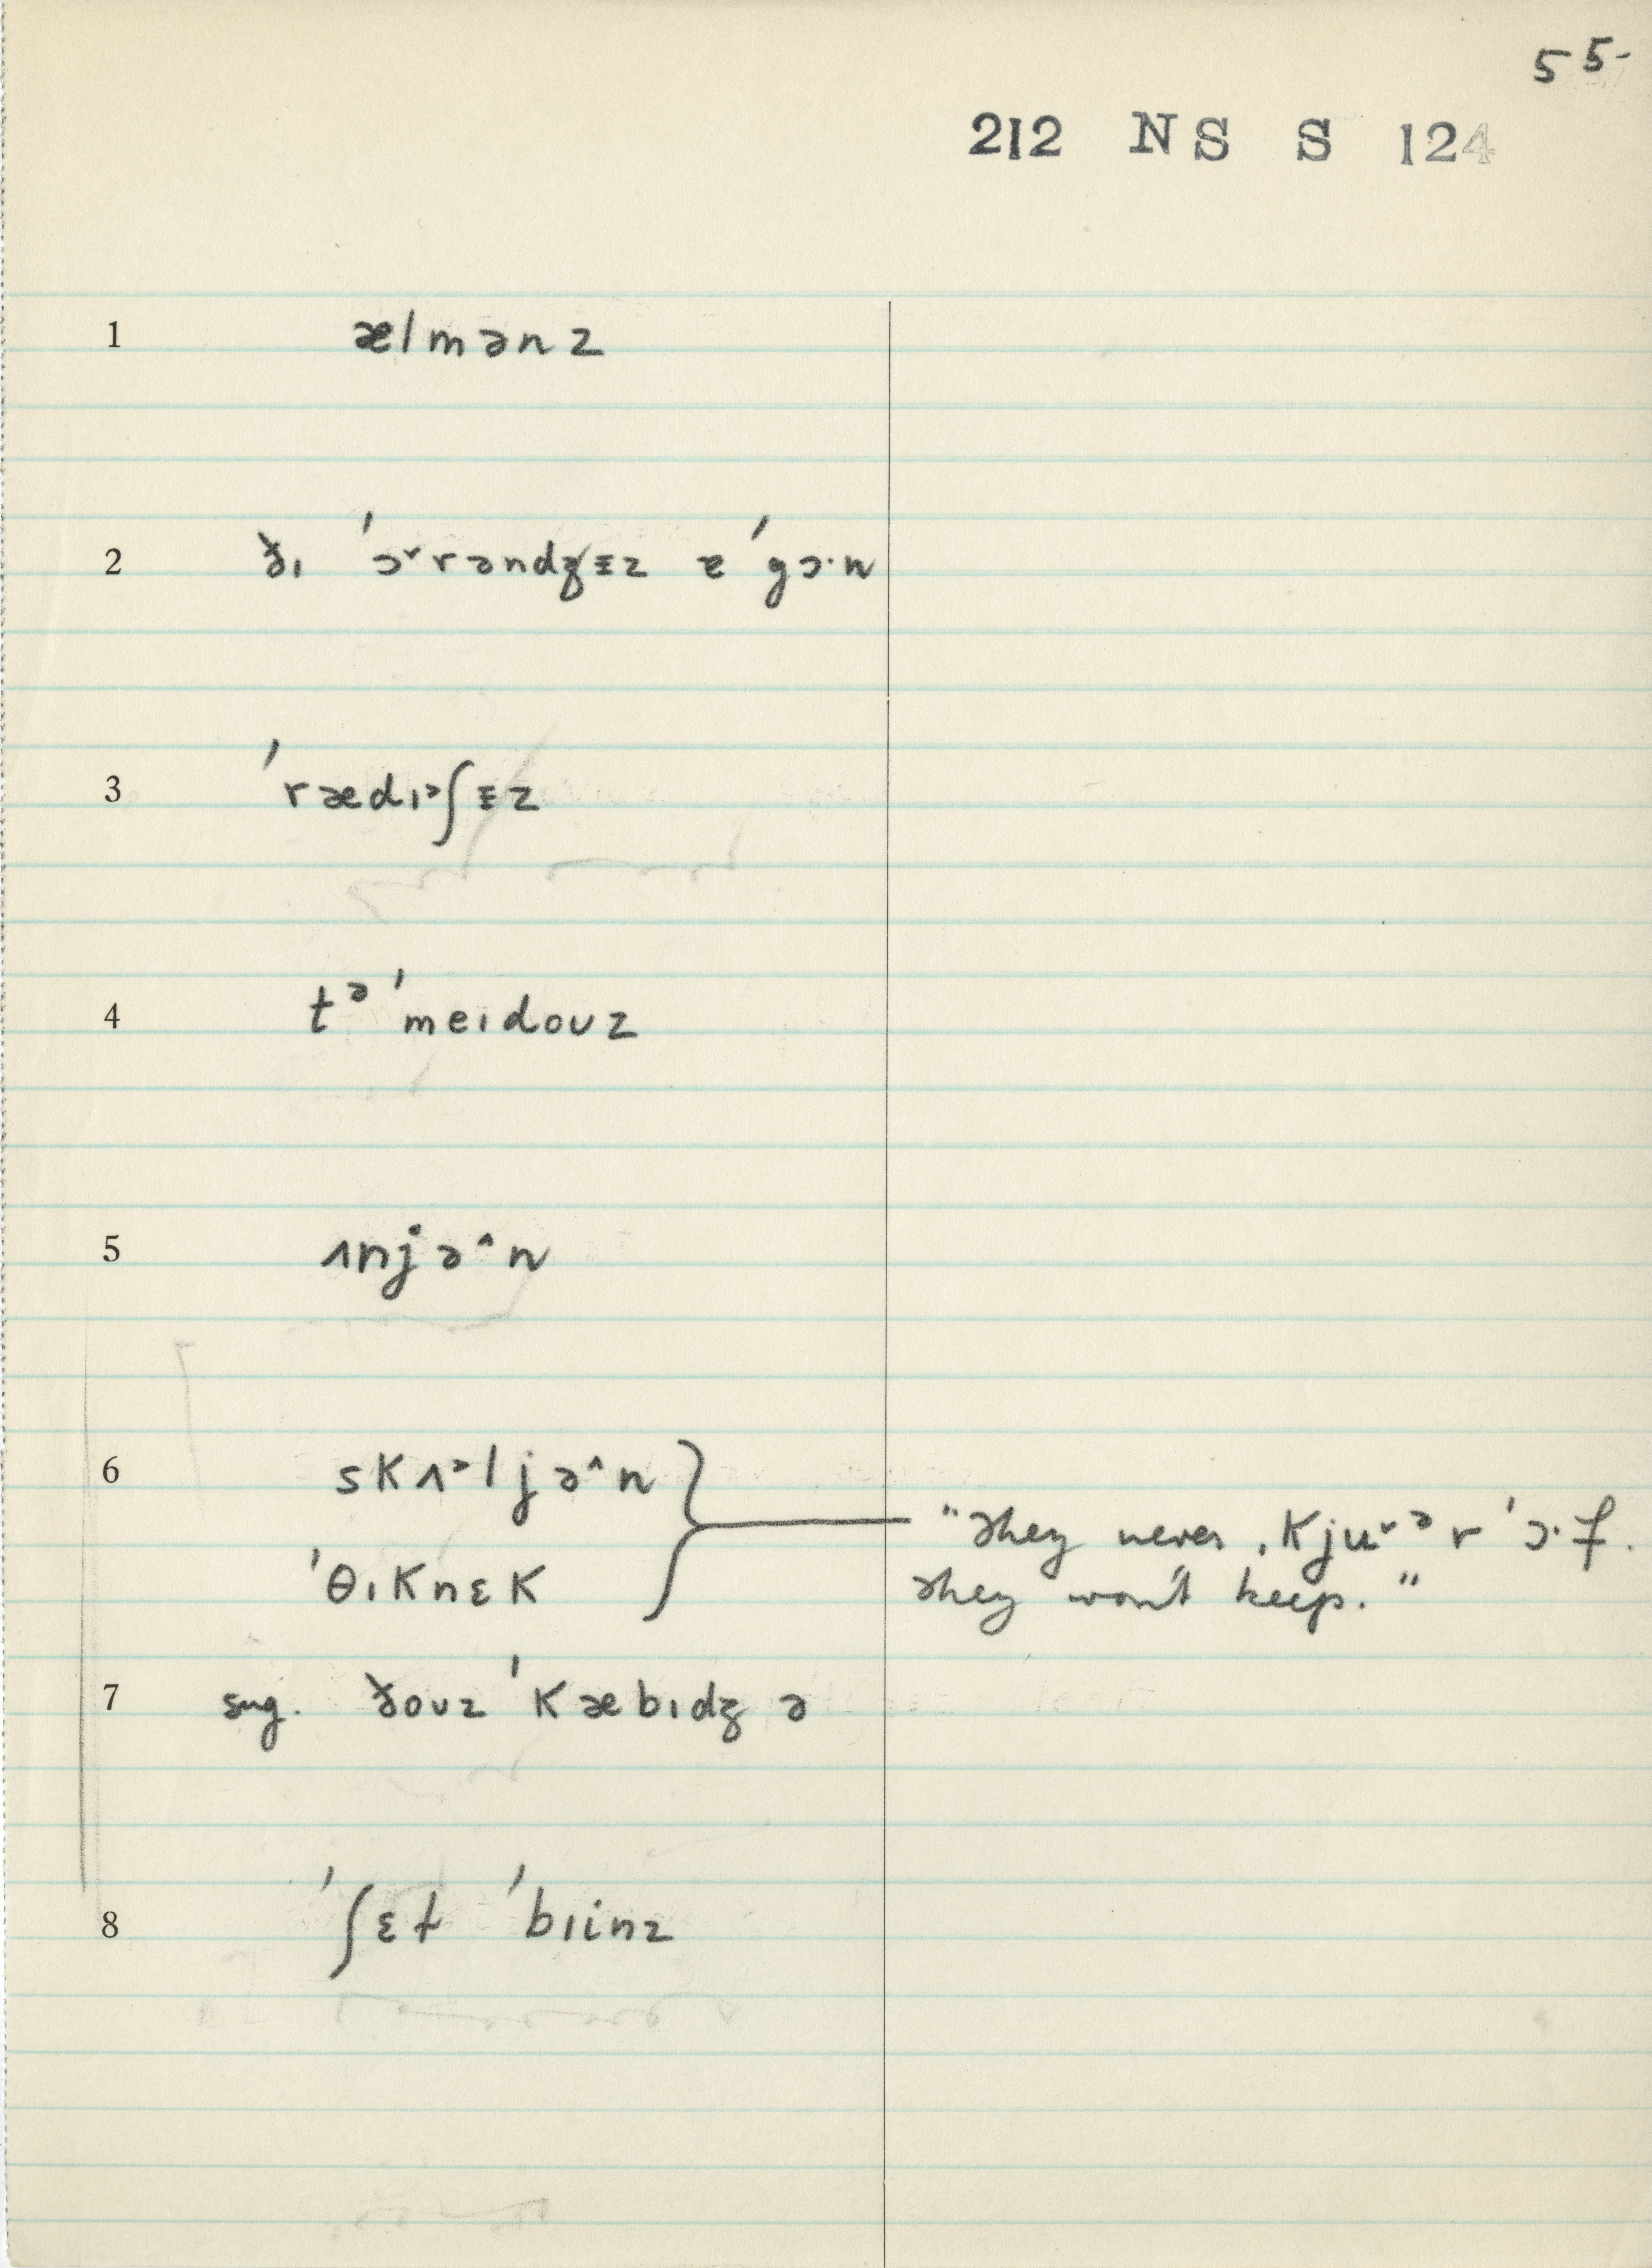 55
212 NS S 124
1 ælmənz
2 ðɪ ˈɔ˅rəndʒᵻz ɐˈgɔ·n
3 ˈrædɪᵊʃᵻz
4 tᵊˈmeɪdoʊz
5 ʌnjə˄n
6 skʌᵊljə˄n
"They never ˌkjʉ˅ᵊrˈɔ·f.
ˈθɪknɛk
They won't keep."
7 sug. ðoʊz ˈkæbɪdʒ ə
8 ˈʃɛɫ ˈbɪinz